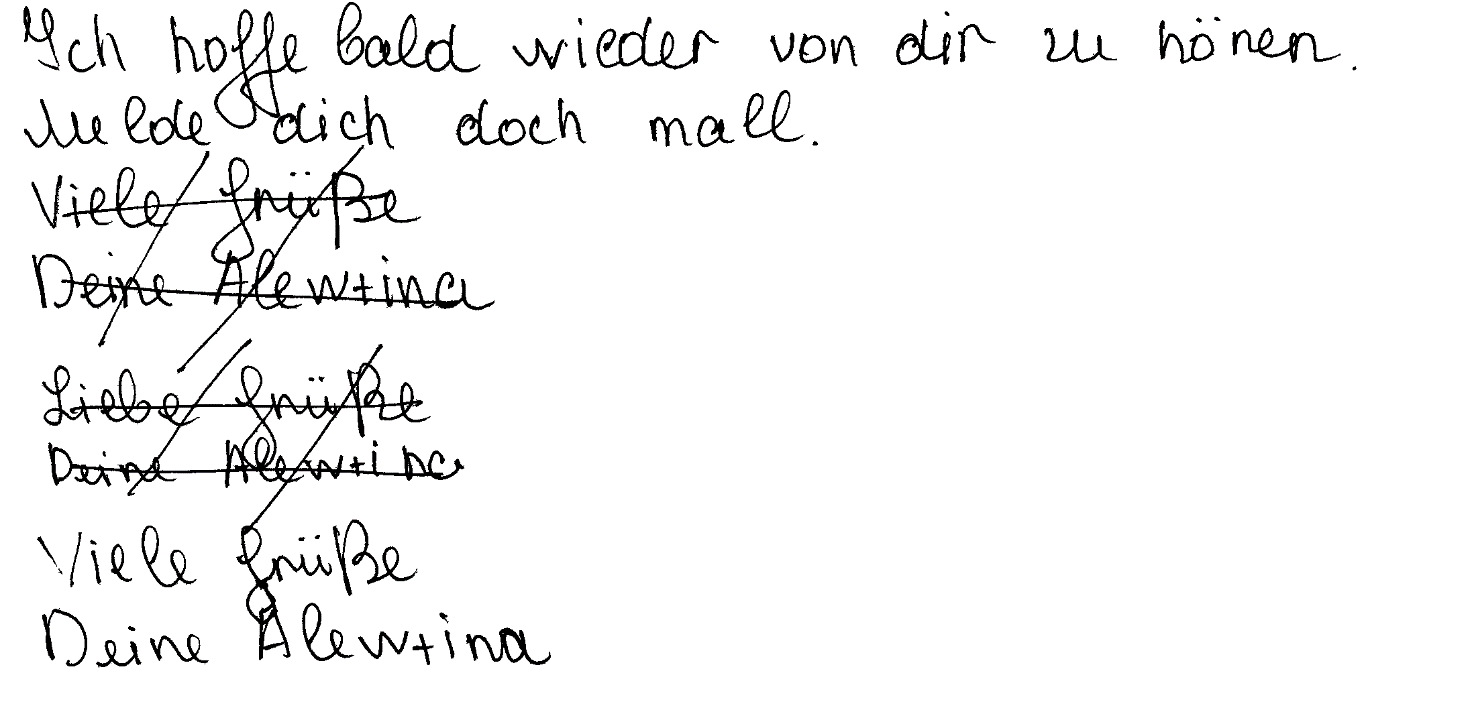 Ich hoffe bald wieder von dir zu hören.
Melde dich doch mall.
Viele Grüße
Deine Alewtina
Liebe Grüße
Deine Alewtina
Viele Grüße
Deine Alewtina